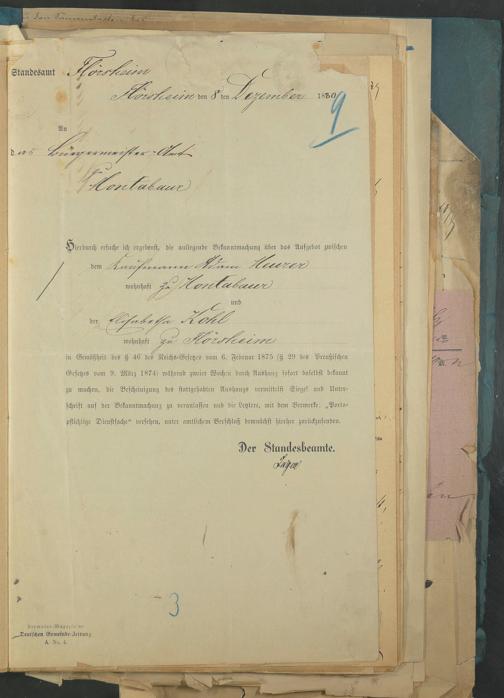 Standesamt Flörsheim
Flörsheim den 8 ten Dezember 18
9
An
das Bürgermeister-Amt
zu Montabaur
Hierdurch ersuche ich ergebenst, die anliegende Bekanntmachung über das Aufgebot zwischen
dem Kaufmann Adam Heuzer
wohnhaft zu Montabaur
und
der Elisabetha Kohl
wohnhaft zu Flörsheim
in Gemäßheit des § 46 des Reichs-Gesetzes vom 6. Februar 1875 (§ 29 des Preußischen
Gesetzes vom 9. März 1874) während zweier Wochen durch Aushang sofort daselbst bekannt
zu machen, die Bescheinigung des stattgehabten Aushangs vermittelst Siegel und Unter-
schrift auf der Bekanntmachung zu veranlassen und die Letztere, mit dem Vermerke: „Porto-
pflichtige Dienstsache“ versehen, unter amtlichem Verschluß demnächst hierher zurückzusenden.
Der Standesbeamte.
3
Formular-Magazin der
Deutschen Gemeinde-Zeitung
A. No. 4.